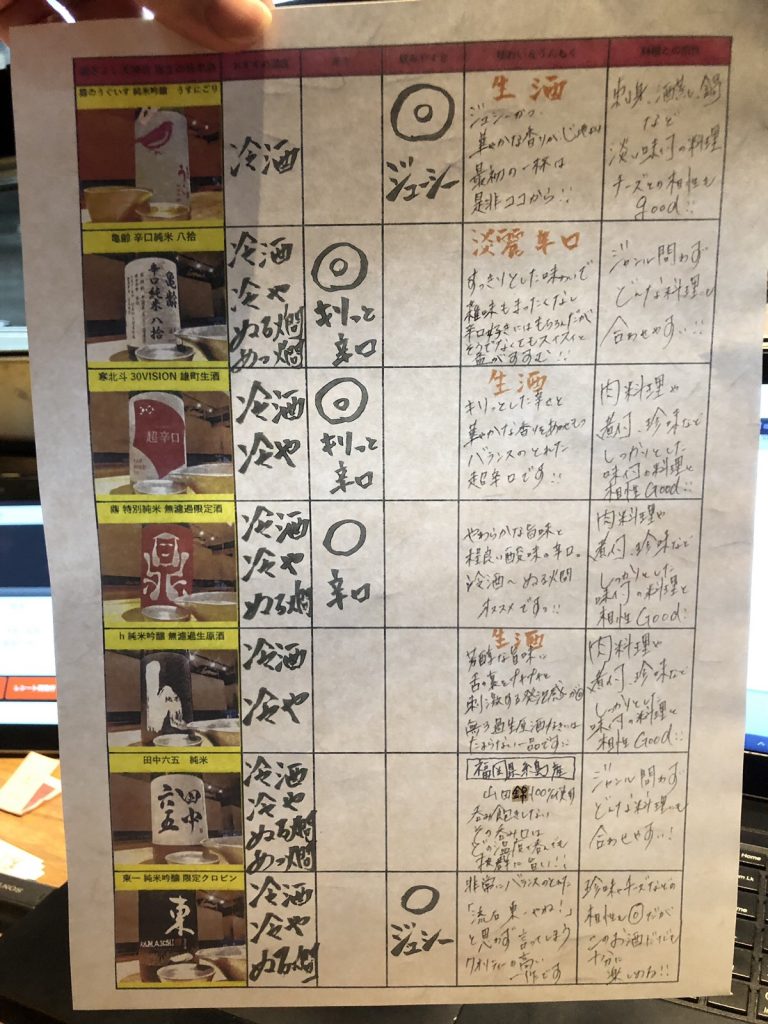 おすすめ温度
辛口
飲みやすさ
味わい&うんちく
料理との相性
庭のうぐいす 純米吟醸 うすにごり
冷酒
◎
ジューシー
生酒
ジューシーかつ
華やかな香りがじゅわり
最初の一杯は
是非ココから!!
刺身、酒蒸し、鍋
など
淡い味付の料理
チーズとの相性も
good!!
亀齢 辛口純米 八拾
亀齢
辛口純米八拾
冷酒
冷や
ぬる燗
あつ燗
◎
キリっと
辛口
淡麗辛口
すっきりとした味わいで
雑味もまったくなし
辛口好きにはもちろんだが
そうでなくてもスイスイと
ジャンル問わず
どんな料理も
合わせやすい!!
寒北斗 30VISION 雄町生酒
超辛口
冷酒
冷や
◎
キリっと
辛口
生酒
キリっとした辛さと
華やかな香りをあわせもつ
バランスのとれた
超辛口です!!
肉料理や
煮付、珍味など
しっかりとした
味付の料理と
相性Good!!
鼎 特別純米 無濾過限定酒
鼎
冷酒
冷や
ぬる燗
○
辛口
やわらかな旨味と
程良い酸味の辛口。
冷酒〜ぬる燗
オススメですっ!!
肉料理や
煮付、珍味など
しっかりとした
味付の料理と
相性Good!!
h 純米吟醸 無濾過生原酒
冷酒
冷や
生酒
芳醇な旨味に
刺激する発泡感が
無ろ過生原酒
たまらない一品です!!
肉料理や
煮付、珍味など
しっかりとした
味付の料理と
相性Good!!
田中六五 純米
田中
六五
冷酒
冷や
ぬる燗
あつ燗
福岡県糸島産
山田錦100%使用
呑み飽きしない
その呑み口は
どの温度で呑んでも
抜群に旨い!!
ジャンル問わず
どんな料理も
合わせやすい!
東一 純米吟醸 限定クロビン
東
冷酒
冷や
ぬる燗
○
ジューシー
非常にバランスのとれた
「流石東一やね!」
と思わず言ってしまう
クオリティーの高い
一作です
珍味やチーズなどの
相性も◎だが
このお酒だけでも
十分に
楽しめる!!
Home